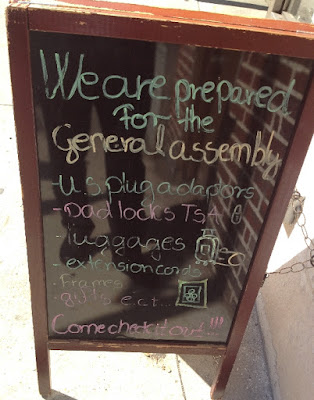 We are prepared
For the
General assembly
- U.S. plug adaptors
- Pad locks TSA
- luggages
- extension cords
· Frames
· gifts e.c.t...
Come check it out...!!!